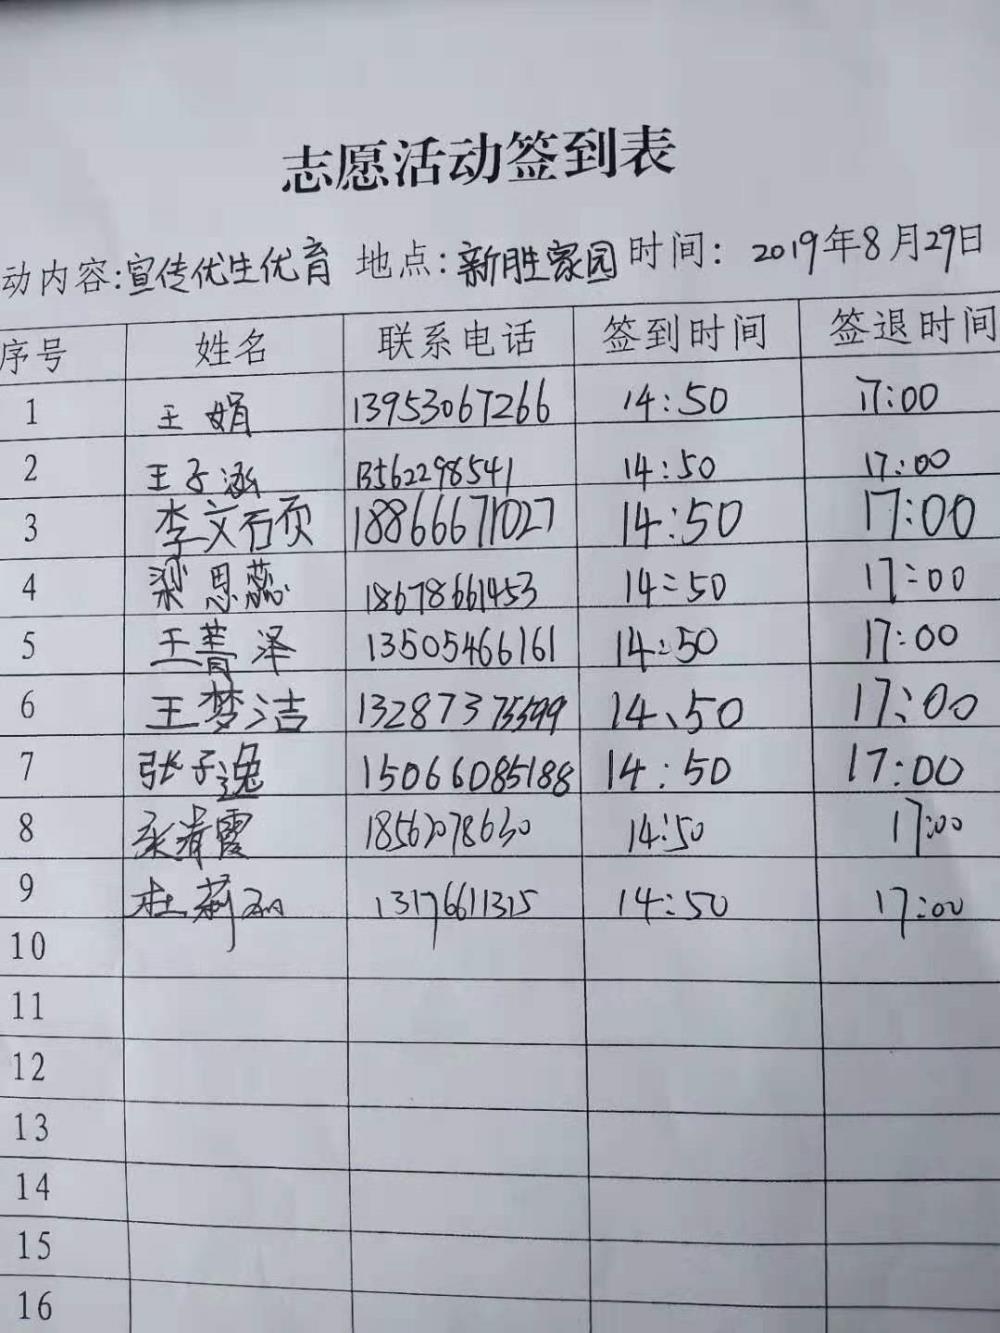 志愿活动签到表
动内容:宣传优生优育 地点:新胜家园 时间: 2019年8月29日
序号 姓名 联系电话 签到时间 签退时间
1 王娟 13953067266 14:50 17:00
2 王子涵 13562298541 14:50 17:00
3 李文硕 18866671027 14:50 17:00
4 梁思蕊 18678661453 14:50 17:00
5 王菁泽 13505466161 14:50 17:00
6 王梦洁 13287375599 14:50 17:00
7 张子逸 15066085188 14:50 17:00
8 霞 18562078630 14:50 17:00
9 杜莉 13176611315 14:50 17:00
10
11
12
13
14
15
16